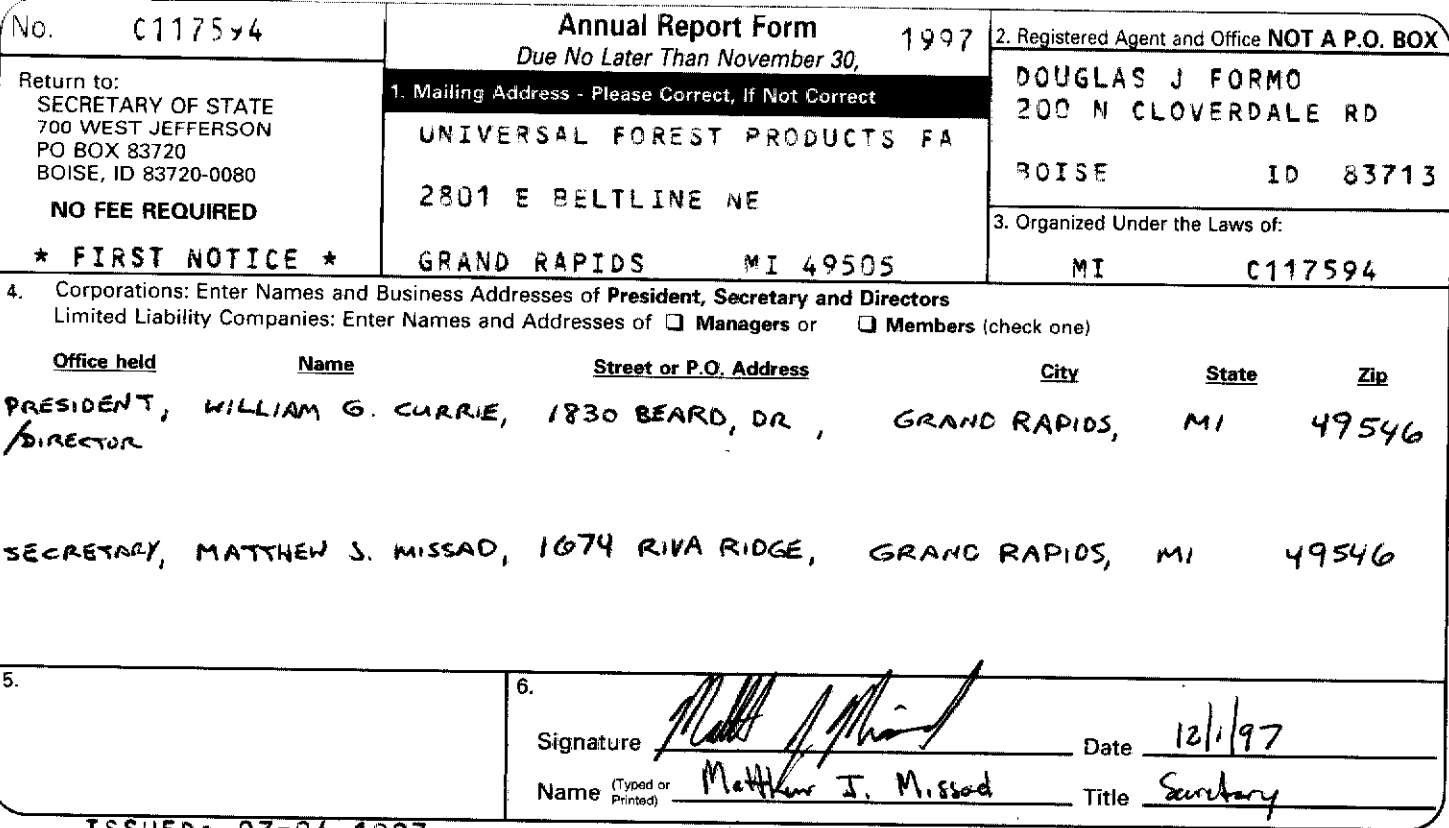 No. C1175y4
Return to:
SECRETARY OF STATE
700 WEST JEFFERSON
PO BOX 83720
BOISE, ID 83720-0080
NO FEE REQUIRED
* FIRST NOTICE *
Annual Report Form 1997
Due No Later Than November 30,
1. Mailing Address - Please Correct, If Not Correct
UNIVERSAL FOREST PRODUCTS FA
2801 E BELTLINE NE
GRAND RAPIDS MI 49505
2. Registered Agent and Office NOT A P.O. BOX
DOUGLAS J FORMO
200 N CLOVERDALE RD
BOISE ID 83713
3. Organized Under the Laws of:
MI C117594
4. Corporations: Enter Names and Business Addresses of President, Secretary and Directors
Limited Liability Companies: Enter Names and Addresses of ❑ Managers or ❑ Members (check one)
Office held Name Street or P.O. Address City State Zip
PRESIDENT, WILLIAM G. CURRIE, 1830 BEARD, DR , GRAND RAPIDS, MI 49546
/DIRECTOR
SECRETARY, MATTHEW J. MISSAD, 1674 RIVA RIDGE, GRAND RAPIDS, MI 49546
5.
6.
Signature Matt J Missad Date 12/1/97
Name (Typed or Printed) Matthew J. Missad Title Secretary